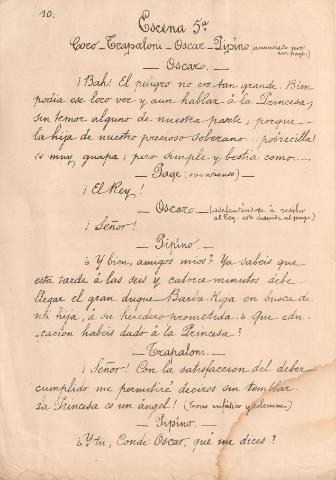 10.
Escena 5ª
Coro - Trapaloni - Oscar - Pipino (anunciado por un page.)
— Oscar. —
¡Bah! El peligro no era tan grande. Bien
podia ese loco ver y aun hablar á la Princesa,
sin temor alguno de nuestra parte; porque
la hija de nuestro precioso soberano... pobrecilla!
es muy guapa; pero simple y bestia como....
— Page (anunciando) —
¡El Rey!
— Oscar — (adelantándose á recibir
al Rey: este despide al page)
¡Señor!
— Pipino. —
¿Y bien, amigos mios? Ya sabeis que
esta tarde á las seis y catorce minutos debe
llegar el gran duque Barba-Roja en busca de
mi hija, á su heredero prometida. ¿Que edu-
cacion habeis dado á la Princesa?
— Trapaloni. —
¡Señor! Con la satisfaccion del deber
cumplido me permitiré deciros sin temblar.
La Princesa es un ángel! (Tono enfático y solemne.)
— Pipino. —
¿Y tu, Conde Oscar, qué me dices?